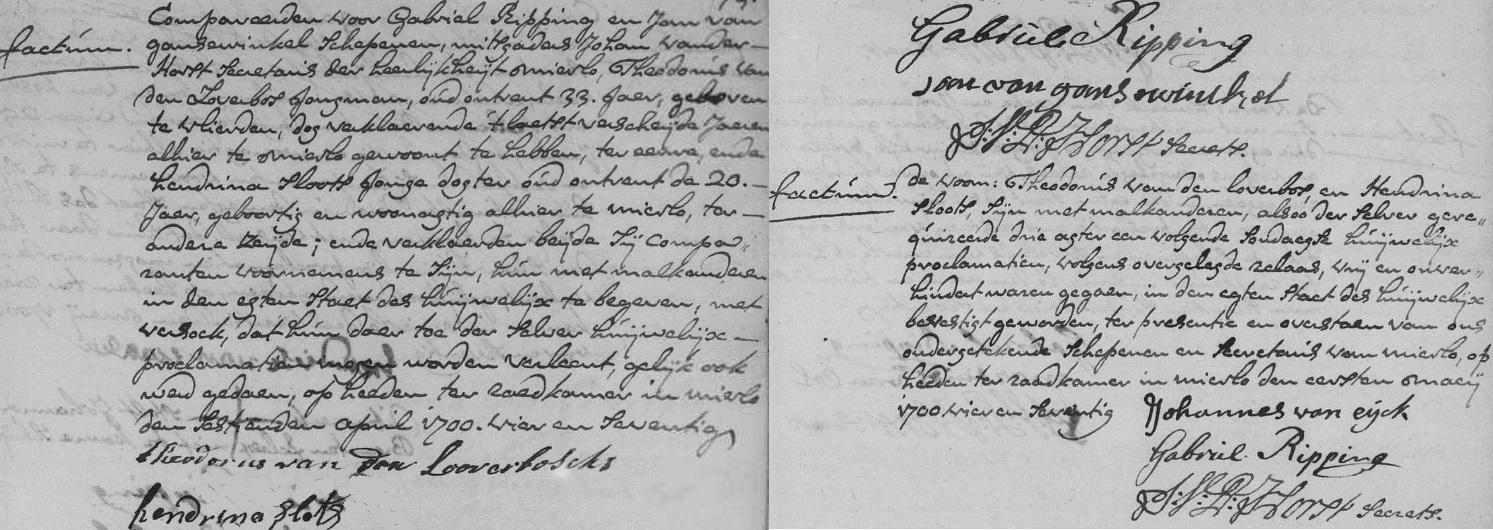 Compareerden voor Gabriel Ripping en Jan van
factum.
gansewinkel Schepenen, mitsgaders Johan vander-
Horst Secretaris der heerlijkheijt Mierlo, Theodorus van
den Loverbos Jongman, oud ontrent 33. Jaer, geboren
te vlierden, dog verklaerende t'laetst verscheijde Jaeren
alhier te Mierlo gewoont te hebben, ter eenre, ende
hendrina Sloots Jonge dogter oud ontrent de 20.-
Jaer, geboortig en woonagtig alhier te Mierlo, ter-
andere zeijde; ende verklaerden beijde Sij Compa-
ranten voornemens te Sijn, hun met malkanderen
in den egten Staet des huijwelijx te begeven, met
versoek, dat hun daer toe der Selver huijwelijx-
proclamatien mogen worden verleent, gelijk ook
werd gedaen, op heeden ter raedkamer in mierlo
den Sestienden april 1700. vier en Seventig
theodorus van Den Looverbosch
hendrina Slots
Gabriel Ripping
Jan van gansewinkel
Horst Secrets.
factum.
de voorn: Theodorus van den loverbos, en Hendrina
Sloots, Sijn met malkanderen, alsoo der Selver gere-
quireerde drie agter een volgende Sondaegse huijwelijx
proclamatien, volgens overgelegde relaas, vrij en onver-
hindert waren gegaen, in den egten Staet des huijwelijx
bevestigt geworden, ter presentie en overstaen van ons
ondergetekende Schepenen en Secretaris van mierlo, op
heeden ter raadkamer in mierlo den eersten Maeij
1700 vier en Seventig Johannes van eijck
Gabriel Ripping
Horst Secrets.